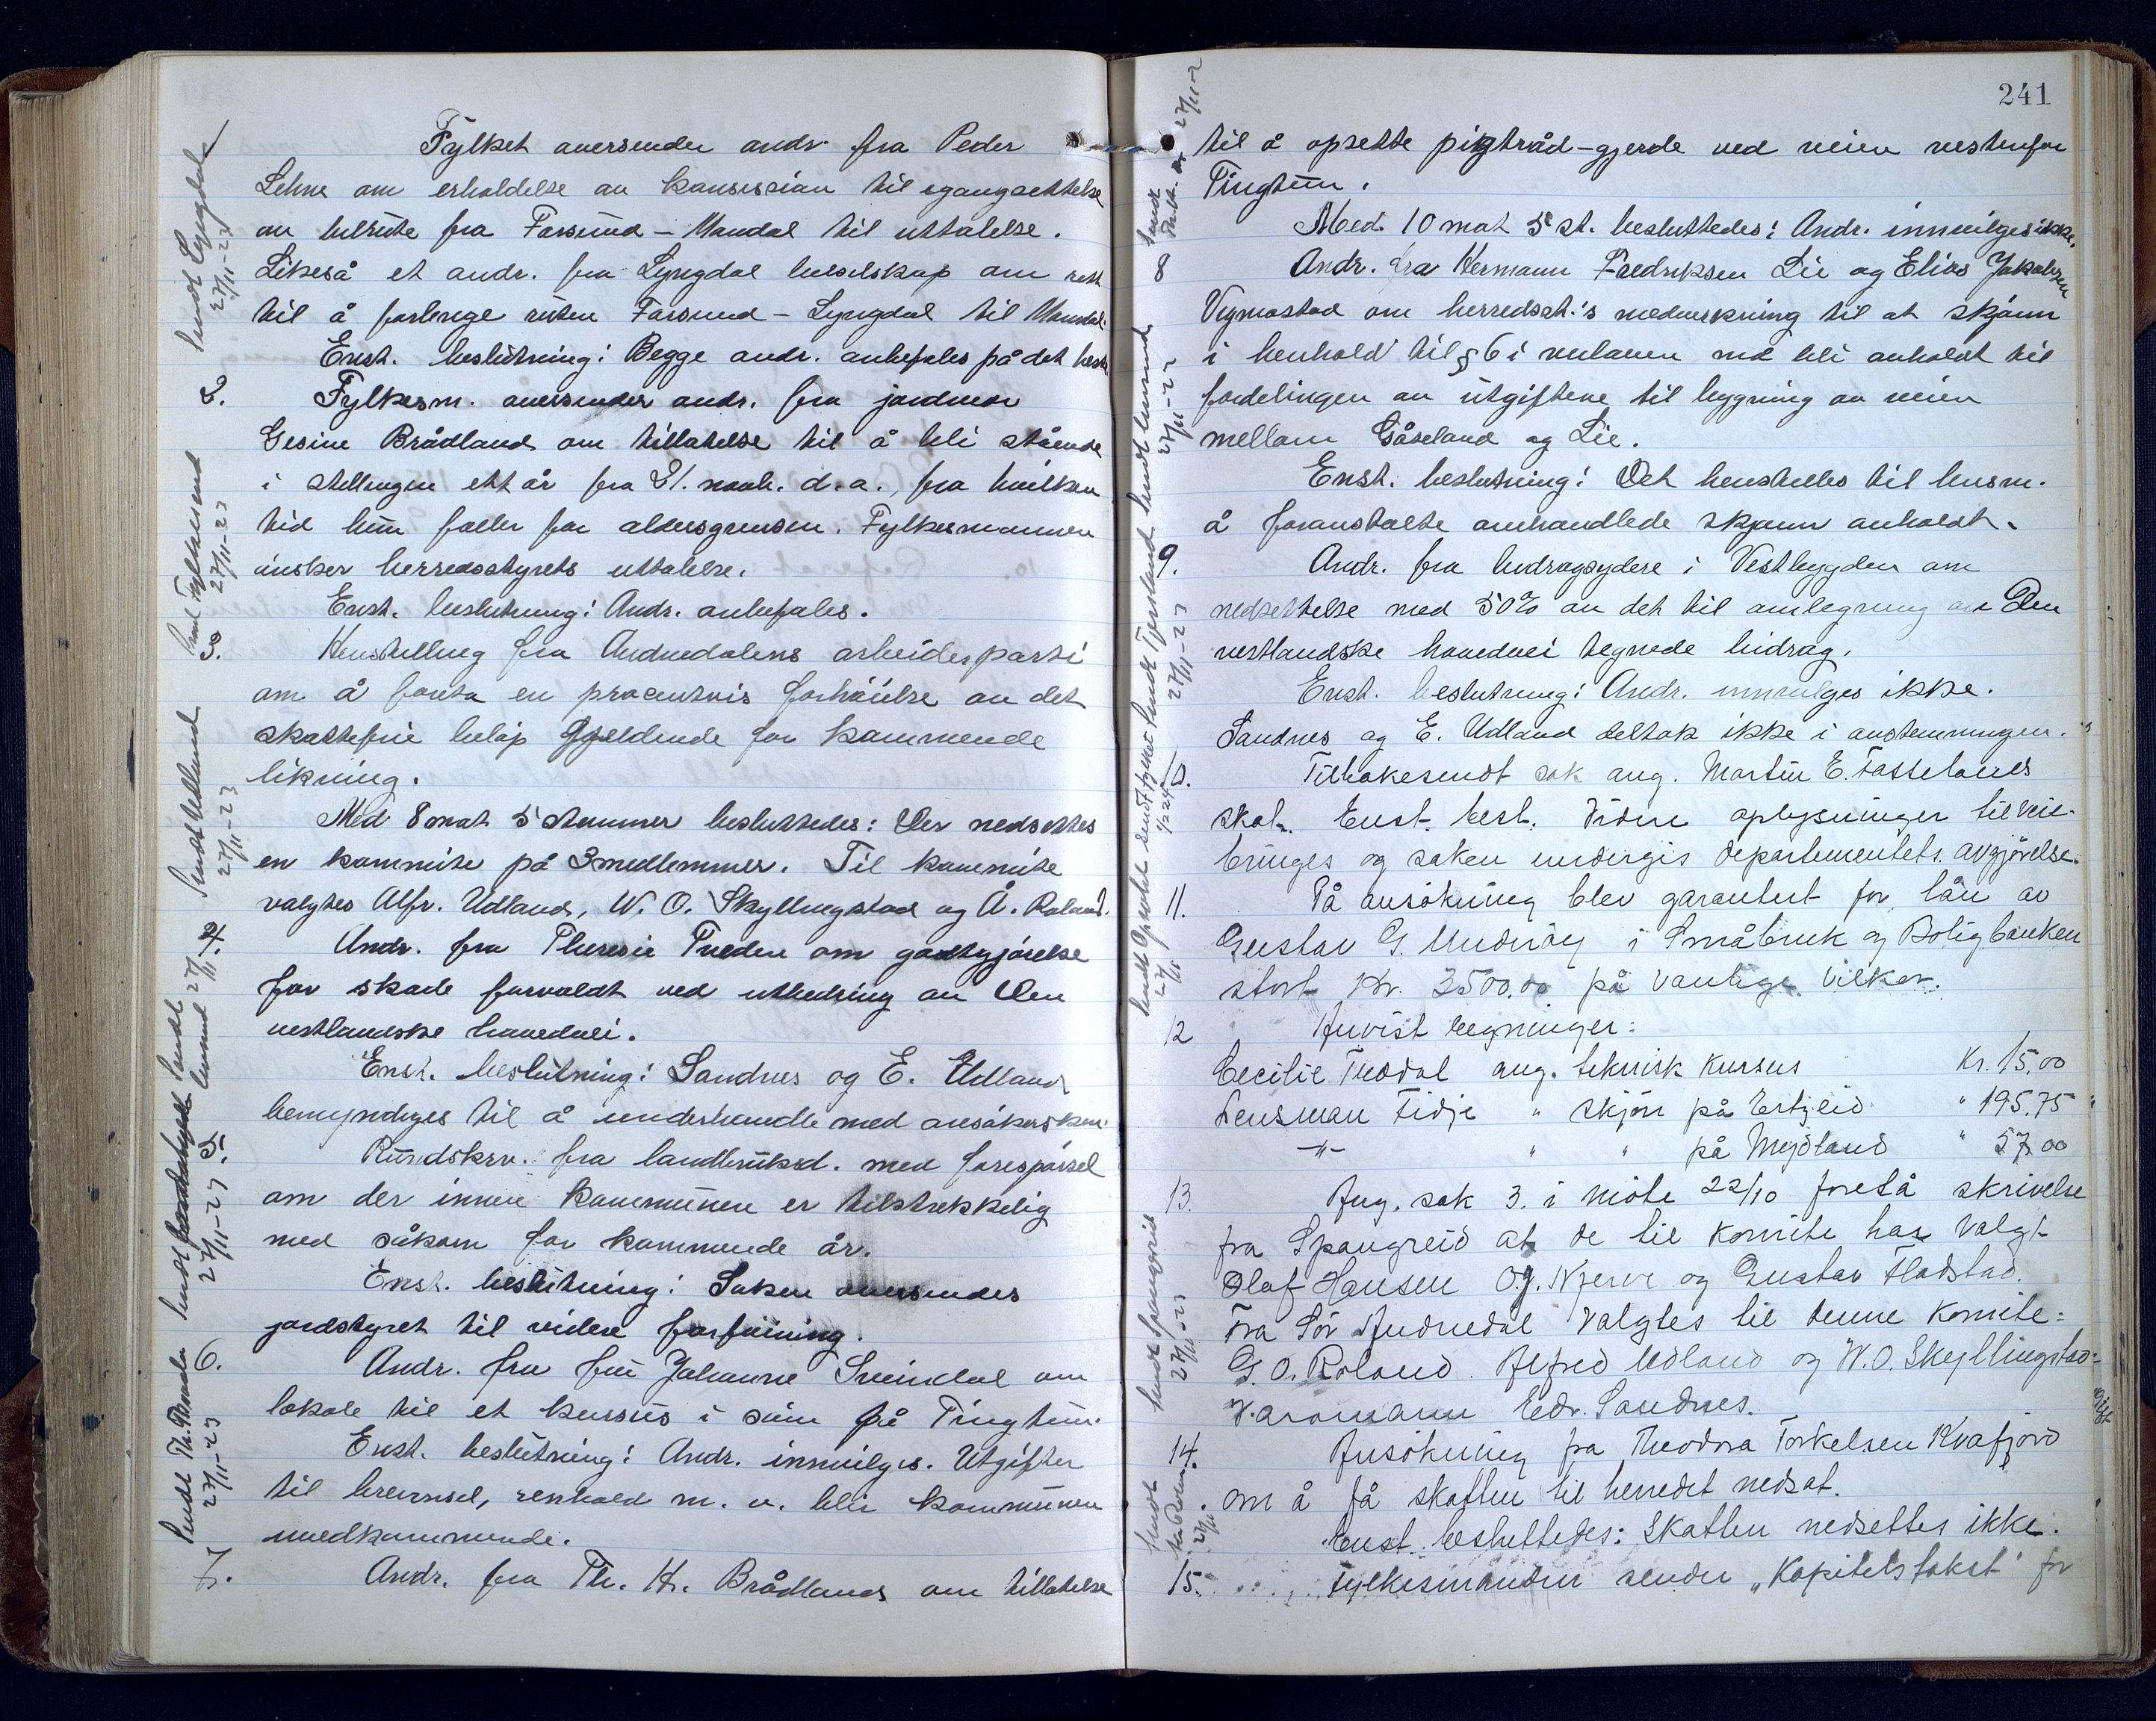 Fylket oversender andr. fra Peder
Lehne om erholdelse av konsesjon til igangsettelse
av bilrute fra Farsund – Mandal til uttalelse.
Likeså et andr. fra Lyngdal bilselskap om rett
til å forlenge ruten Farsund – Lyngdal til Mandal.
Enst. beslutning: Begge andr. anbefales på det beste
2. Fylkesm. oversender andr. fra jordmor
Gesine Brådland om tillatelse til å bli stående
i stillingen ett år fra 21. novb. d.a., fra hvilken
tid hun faller for aldersgrensen. Fylkesmannen
ønsker herredsstyrets uttalelse.
Enst. beslutning: Andr. anbefales.
3. Henstilling fra Audnedalens arbeiderparti
om å foreta en procentvis forhöielse av det
skattefrie beløp gjeldende for kommende
likning.
Med 8 mot 5 stemmer besluttedes: Der nedsettes
en kommite på 3 medlemmer. Til kommite
valgtes Alfr. Udland, W. O. Skyllingstad og Å. Roland.
4. Andr. fra Theresie Tveden om godtgjörelse
for skade forvoldt ved utbedring av Den
vestlandske hovedvei.
Enst. beslutning: Sandnes og E. Udland
bemyndiges til å underhandle med ansøkersken.
5. Rundskrv. fra landbruksd. med forespørsel
om der innen kommunen er tilstrekkelig
med såkorn for kommende år.
Enst. beslutning: Saken oversendes
jordstyret til videre forføining.
6. Andr. fra frk Johanne Svindal om
lokale til et kursus i søm på Tingtun.
Enst. beslutning: Andr. innvilges. Utgifter
til brensel, renhold m. v. blir kommunen
uvedkommende.
7. Andr. fra Th. Kr. Brådland om tillatelse
Sendt Lyngdal
27/11-23
Send fylkesmend
27/11-23
Sendt Udland
27/11-23
Sendt
27/11-23
Sendt Th.
27/11-23
241
til å opsette pigtråd-gjerde ved veien vestenfor
Tingtun.
Med 10 mot 5 st. besluttedes: Andr. innvilges ikke.
8 Andr. fra Hermann Fredriksen Lie og Elias Jakobsen
Vigmostad om herredsst.'s medvirkning til at skjønn
i henhold til § 6 i veiloven må bli avholdt til
fordelingen av utgiftene til bygging av veien
mellom Gåseland og Lie.
Enst. beslutning: Det henstilles til lensm.
å foranstalte omhandlede skjønn avholdt.
9. Andr. fra bidragsydere i Vestbygden om
nedsettelse med 50% av det til omlegning av Den
vestlandske hovedvei tegnede bidrag.
Enst. beslutning: Andr. innvilges ikke.
Sandnes og E. Udland deltok ikke i avstemningen.
10. Tilbakesendt sak ang. Martin E. Tasselands
skat. Enst. besl. Videre oplysninger tilveie-
bringes og saken undergis departementets avgjørelse.
11. På ansökning blev garantert for lån av
Gustav G. Undröy i Småbruk og Boligbanken
stort Kr. 3500.00 på vanlige vilkor.
12 Anvist regninger:
Cecilie Tredal ang. teknisk kursus Kr. 15,00
Lensman Fidje " skjön på Ertzeid " 195,75
-"- " " på Mydland " 57,00
13. Ang. sak 3. i möte 22/10 forelå skrivelse
fra Spangreid at de til komite har valgt
Olaf Hansen, O.J. Njerve og Gustav Flodstad.
Fra Sör Audnedal valgtes til denne komite:
G. O. Roland. Alfred Udland og W. O. Skyllingstad.
Varamann Edv. Sandnes.
14. Ansökning fra Theodora Torkelsen Kvafjord
om å få skatten til herredet nedsat.
Enst. besluttedes: Skatten nedsettes ikke.
15. Fylkesmanden sender „Kapitelstakst" for
27/11-23
Sendt Spangreid
27/11-23
Sendt
27/11